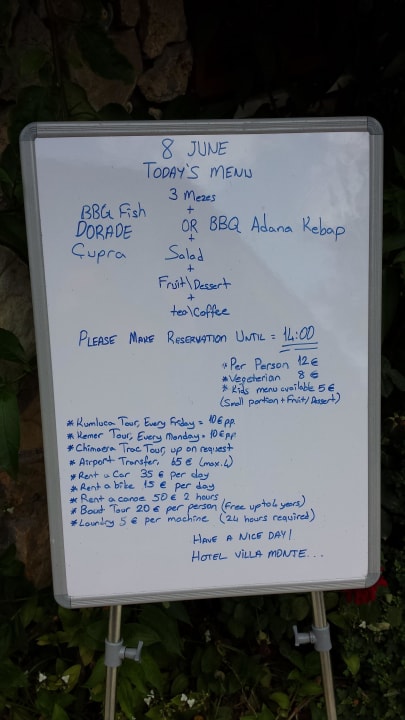 8 JUNE
TODAY'S MENU
3 Mezes
+
BBQ Fish
DORADE OR BBQ Adana Kebap
Çupra
+
Salad
+
Fruit\Dessert
+
tea\Coffee
PLEASE MAKE RESERVATION UNTIL = 14:00
* Per Person 12 €
* Vegeterian 8 €
* Kids menu available 5 €
(Small portion + Fruit/Dessert)
* Kumluca Tour, Every Friday = 10 € pp.
* Kemer Tour, Every Monday = 10 € pp
* Chimaera Trac Tour, up on request
* Airport Transfer, 65 € (max. 4)
* Rent a Car 35 € per day
* Rent a bike 15 € per day
* Rent a canoe 50 € 2 hours
* Boat Tour 20 € per person (Free up to 4 years)
* Laundry 5 € per machine (24 hours required)
HAVE A NICE DAY!
HOTEL VILLA MONTE...